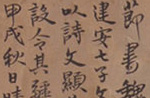 節書魏
建安七子文
以詩文顯
設令其雖
甲戌秋日晴